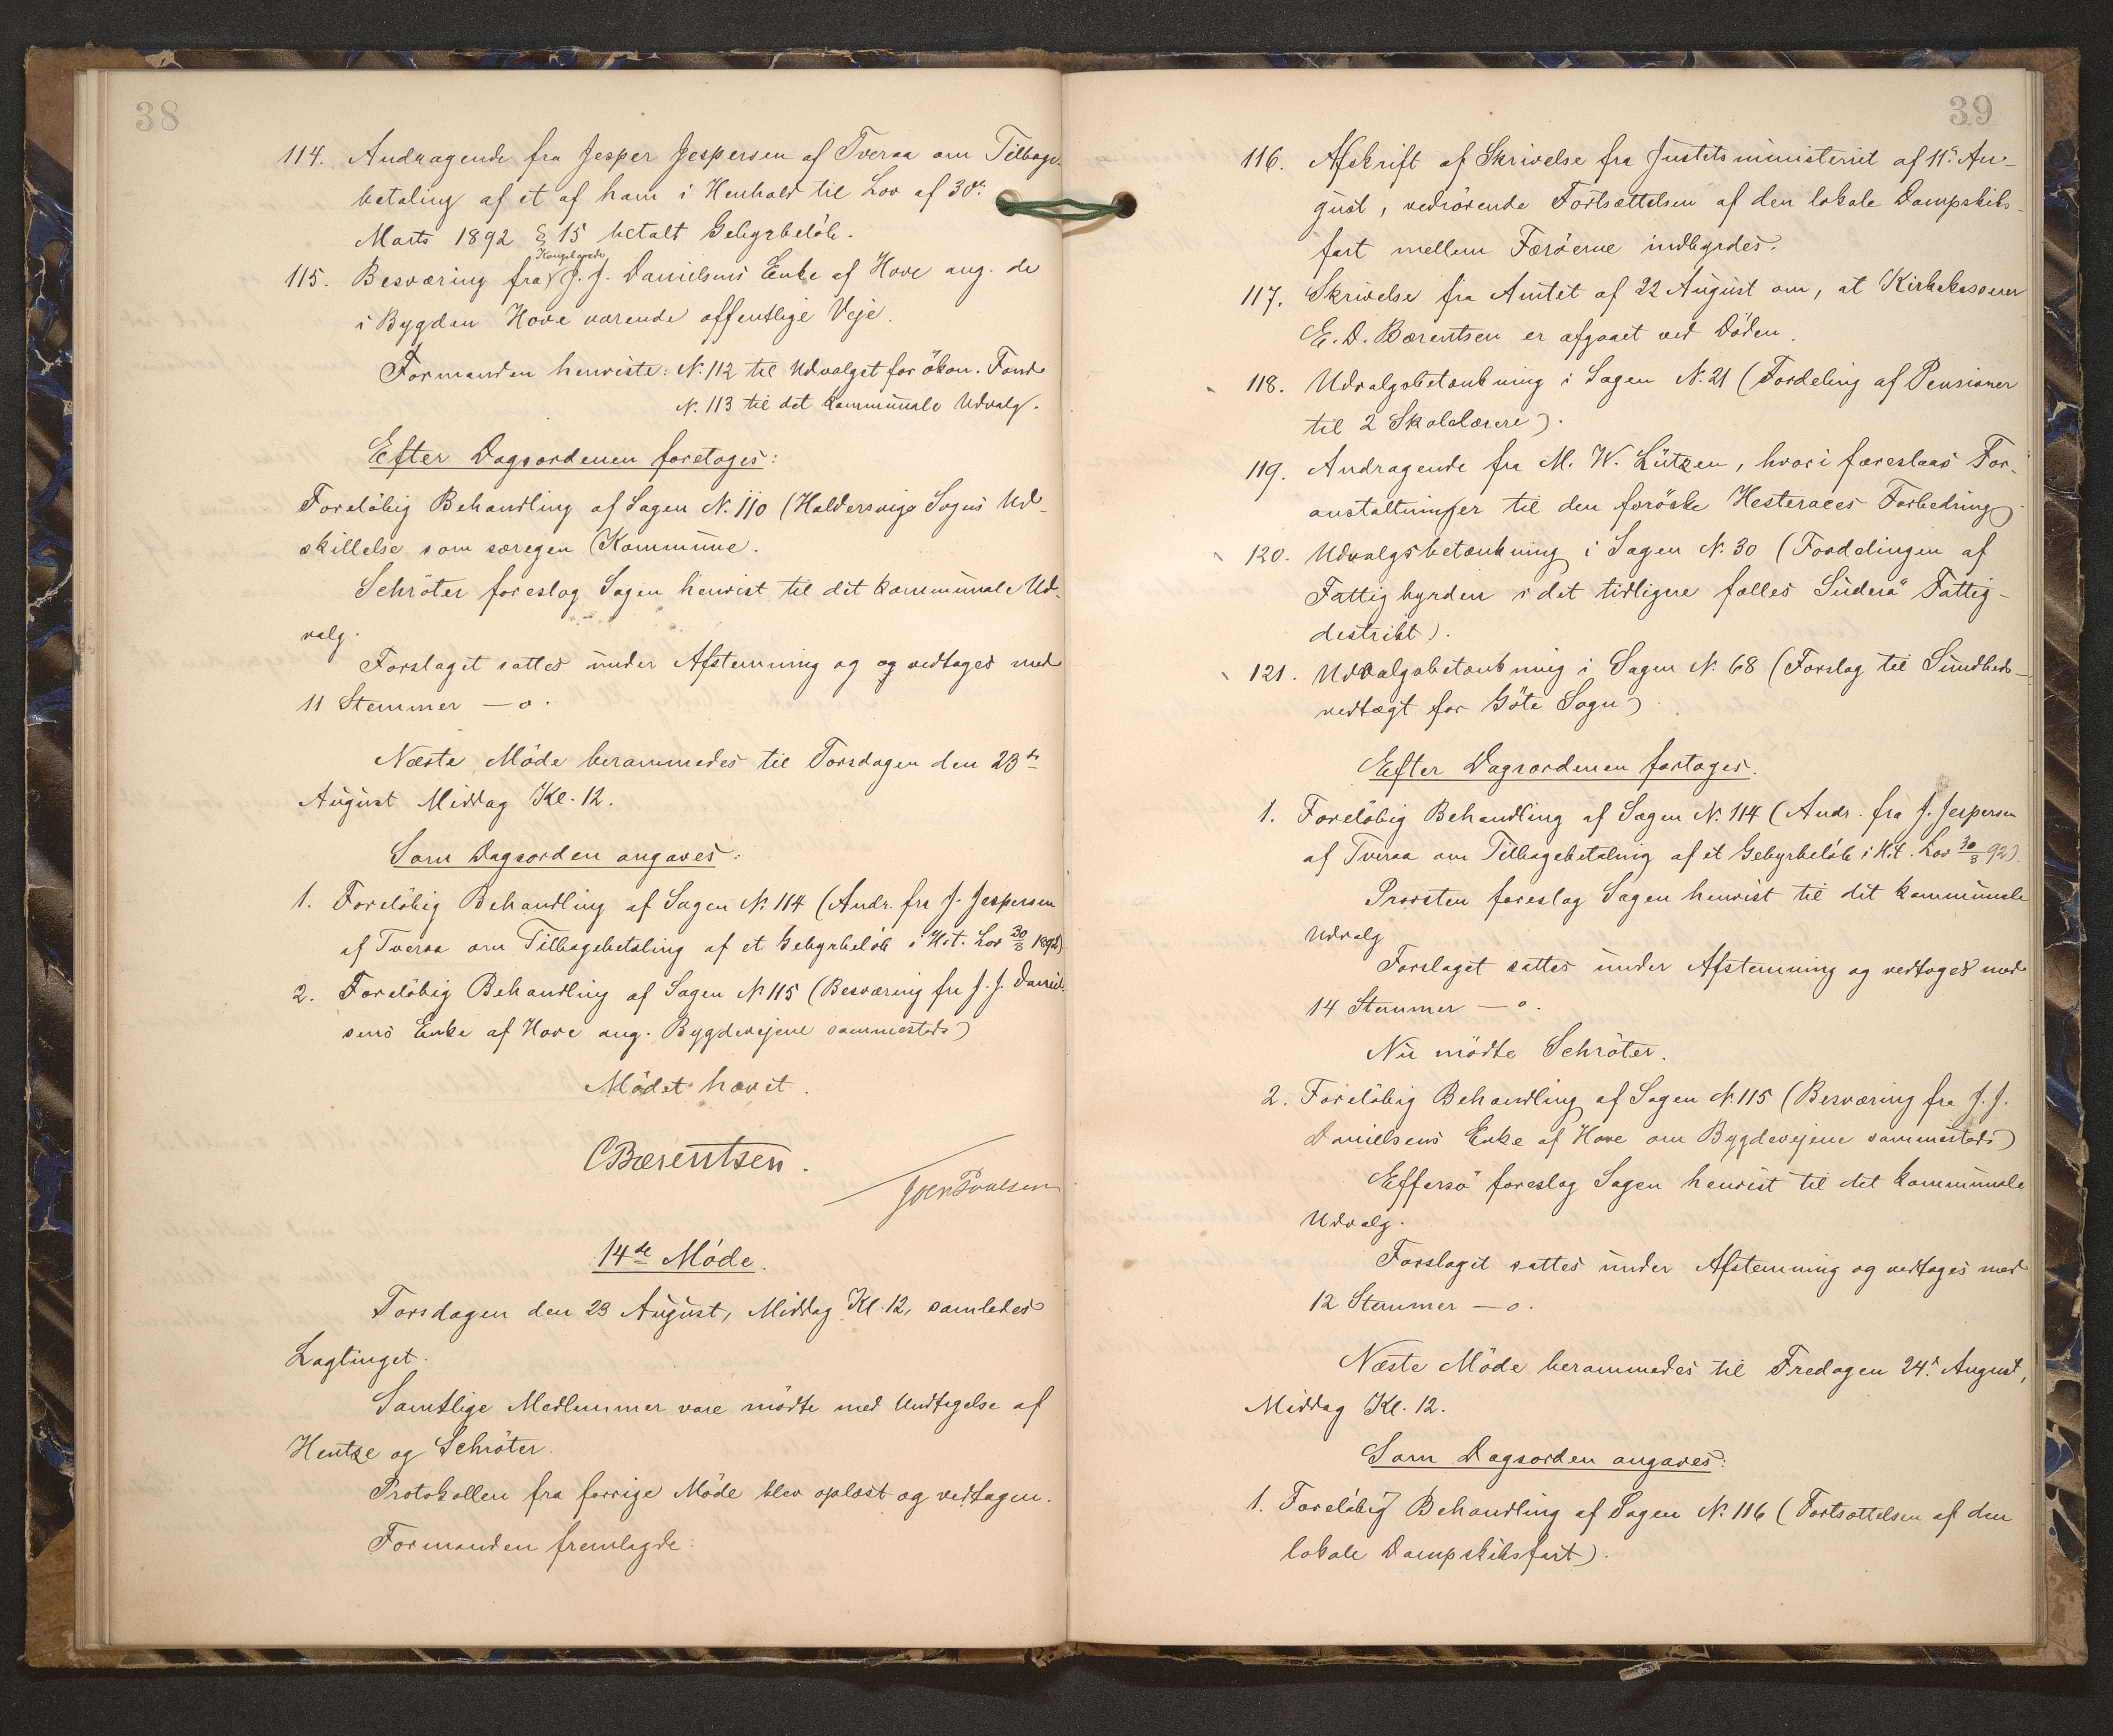 38
114. Andragende fra Jesper Jespersen af Tveraa om Tilbage-
betaling af et af ham i Henhold til Lov af 30te
Marts 1892 § 15 betalt Gebyrbeløb.
Kongsbonde
115. Besværing fra J. J. Danielsens Enke af Hove ang. de
i Bygden Hove værende offentlige Veje.
Formanden henviste: N. 112 til Udvalget for økon. Fond
N. 113 til det kommunale Udvalg.
Efter Dagsordenen foretoges:
Foreløbig Behandling af Sagen N. 110 (Haldersvigs Sogns Ud-
skillelse som særegen Kommune.
Schrøter foreslog Sagen henvist til det kommunale Ud-
valg.
Forslaget sattes under Afstemning og og vedtoges med
11 Stemmer — o.
Næste Møde berammedes til Torsdagen den 23de
August Middag Kl. 12.
Som Dagsorden angaves:
1. Foreløbig Behandling af Sagen N. 114 (Andr. fra J. Jespersen
af Tveraa om Tilbagebetaling af et Gebyrbeløb i H.t. Lov 30/3 1892)
2. Foreløbig Behandling af Sagen N. 115 (Besværing fra J. J. Daniel-
sens Enke af Hove ang. Bygdevejene sammesteds)
Mødet hævet.
CBærentsen.
Joen Poulsen
14de Møde.
Torsdagen den 23 August, Middag Kl. 12, samledes
Lagtinget.
Samtlige Medlemmer vare mødte med Undtagelse af
Hentze og Schrøter.
Protokollen fra forrige Møde blev oplæst og vedtagen.
Formanden fremlagde:
39
116. Afskrift af Skrivelse fra Justitsministeriet af 11' Au-
gust, vedrørende Fortsættelsen af den lokale Dampskibs-
fart mellem Færøerne indbyrdes.
117. Skrivelse fra Amtet af 22 August om, at Kirkekasserer
E. D. Bærentsen er afgaaet ved Døden.
118. Udvalgsbetænkning i Sagen N. 21 (Fordeling af Pensioner
til 2 Skolelærere).
119. Andragende fra M. W. Lützen, hvori foreslaas For-
anstaltninger til den færøske Hesteraces Forbedring.
120. Udvalgsbetænkning i Sagen N. 30 (Fordelingen af
Fattigbyrden i det tidligere fælles Suderø Fattig-
distrikt).
121. Udvalgsbetænkning i Sagen N. 68 (Forslag til Sundheds-
vedtægt for Gøte Sogn)
Efter Dagsordenen fortoges.
1. Foreløbig Behandling af Sagen N. 114 (Andr. fra J. Jespersen
af Tveraa om Tilbagebetaling af et Gebyrbeløb i H.t. Lov 30/3 92).
Provsten foreslog Sagen henvist til det kommunale
Udvalg
Forslaget sattes under Afstemning og vedtoges med
14 Stemmer — o.
Nu mødte Schrøter.
2. Foreløbig Behandling af Sagen N. 115 (Besværing fra J. J.
Danielsens Enke af Hove om Bygdevejene sammesteds)
Effersø foreslog Sagen henvist til det kommunale
Udvalg.
Forslaget sattes under Afstemning og vedtoges med
12 Stemmer — o.
Næste Møde berammedes til Fredagen 24' August,
Middag Kl. 12.
Som Dagsorden angaves:
1. Foreløbig Behandling af Sagen N. 116 (Fortsættelsen af den
lokale Dampskibsfart).